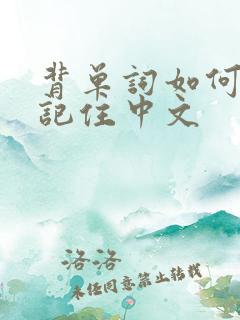 背单词如何
記住中文
洛洛
未经同意禁止转载